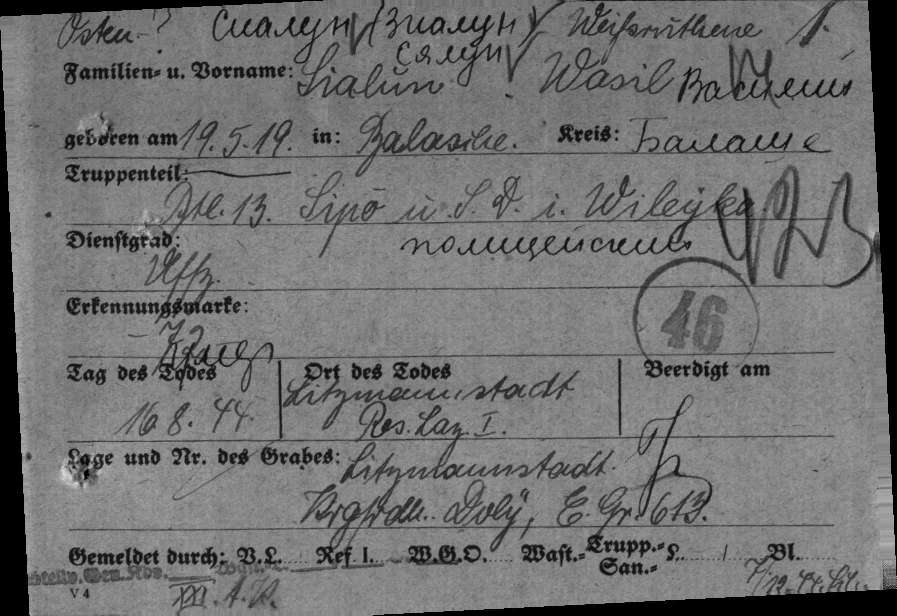 Osten-? Сиалун (Зиалун) Weißruthene 1.
Сялун
Familien- u. Vorname: Sialun Wasil Василий
geboren am 19.5.19. in: Balasche. Kreis: Балаше
Truppenteil:
Btl. 13. Sipo u. S.D. i. Wileyka
Dienstgrad: полицейский
Uffz.
Erkennungsmarke:
46
Tag des Todes Ort des Todes Beerdigt am
16.8.44. Litzmannstadt
Res. Laz. I.
Lage und Nr. des Grabes: Litzmannstadt.
Krgfrdh. Doly, E. Gr. 613.
Gemeldet durch: V.L. Ref I. W.G.O. Wast.- Trupp.- San.- L. / Bl.
V 4